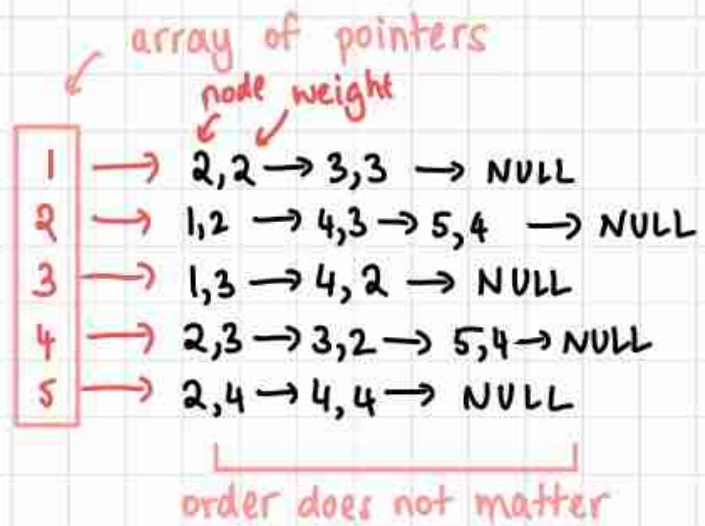 array of pointers
node weight
1 → 2,2 → 3,3 → NULL
2 → 1,2 → 4,3 → 5,4 → NULL
3 → 1,3 → 4,2 → NULL
4 → 2,3 → 3,2 → 5,4 → NULL
5 → 2,4 → 4,4 → NULL
order does not matter